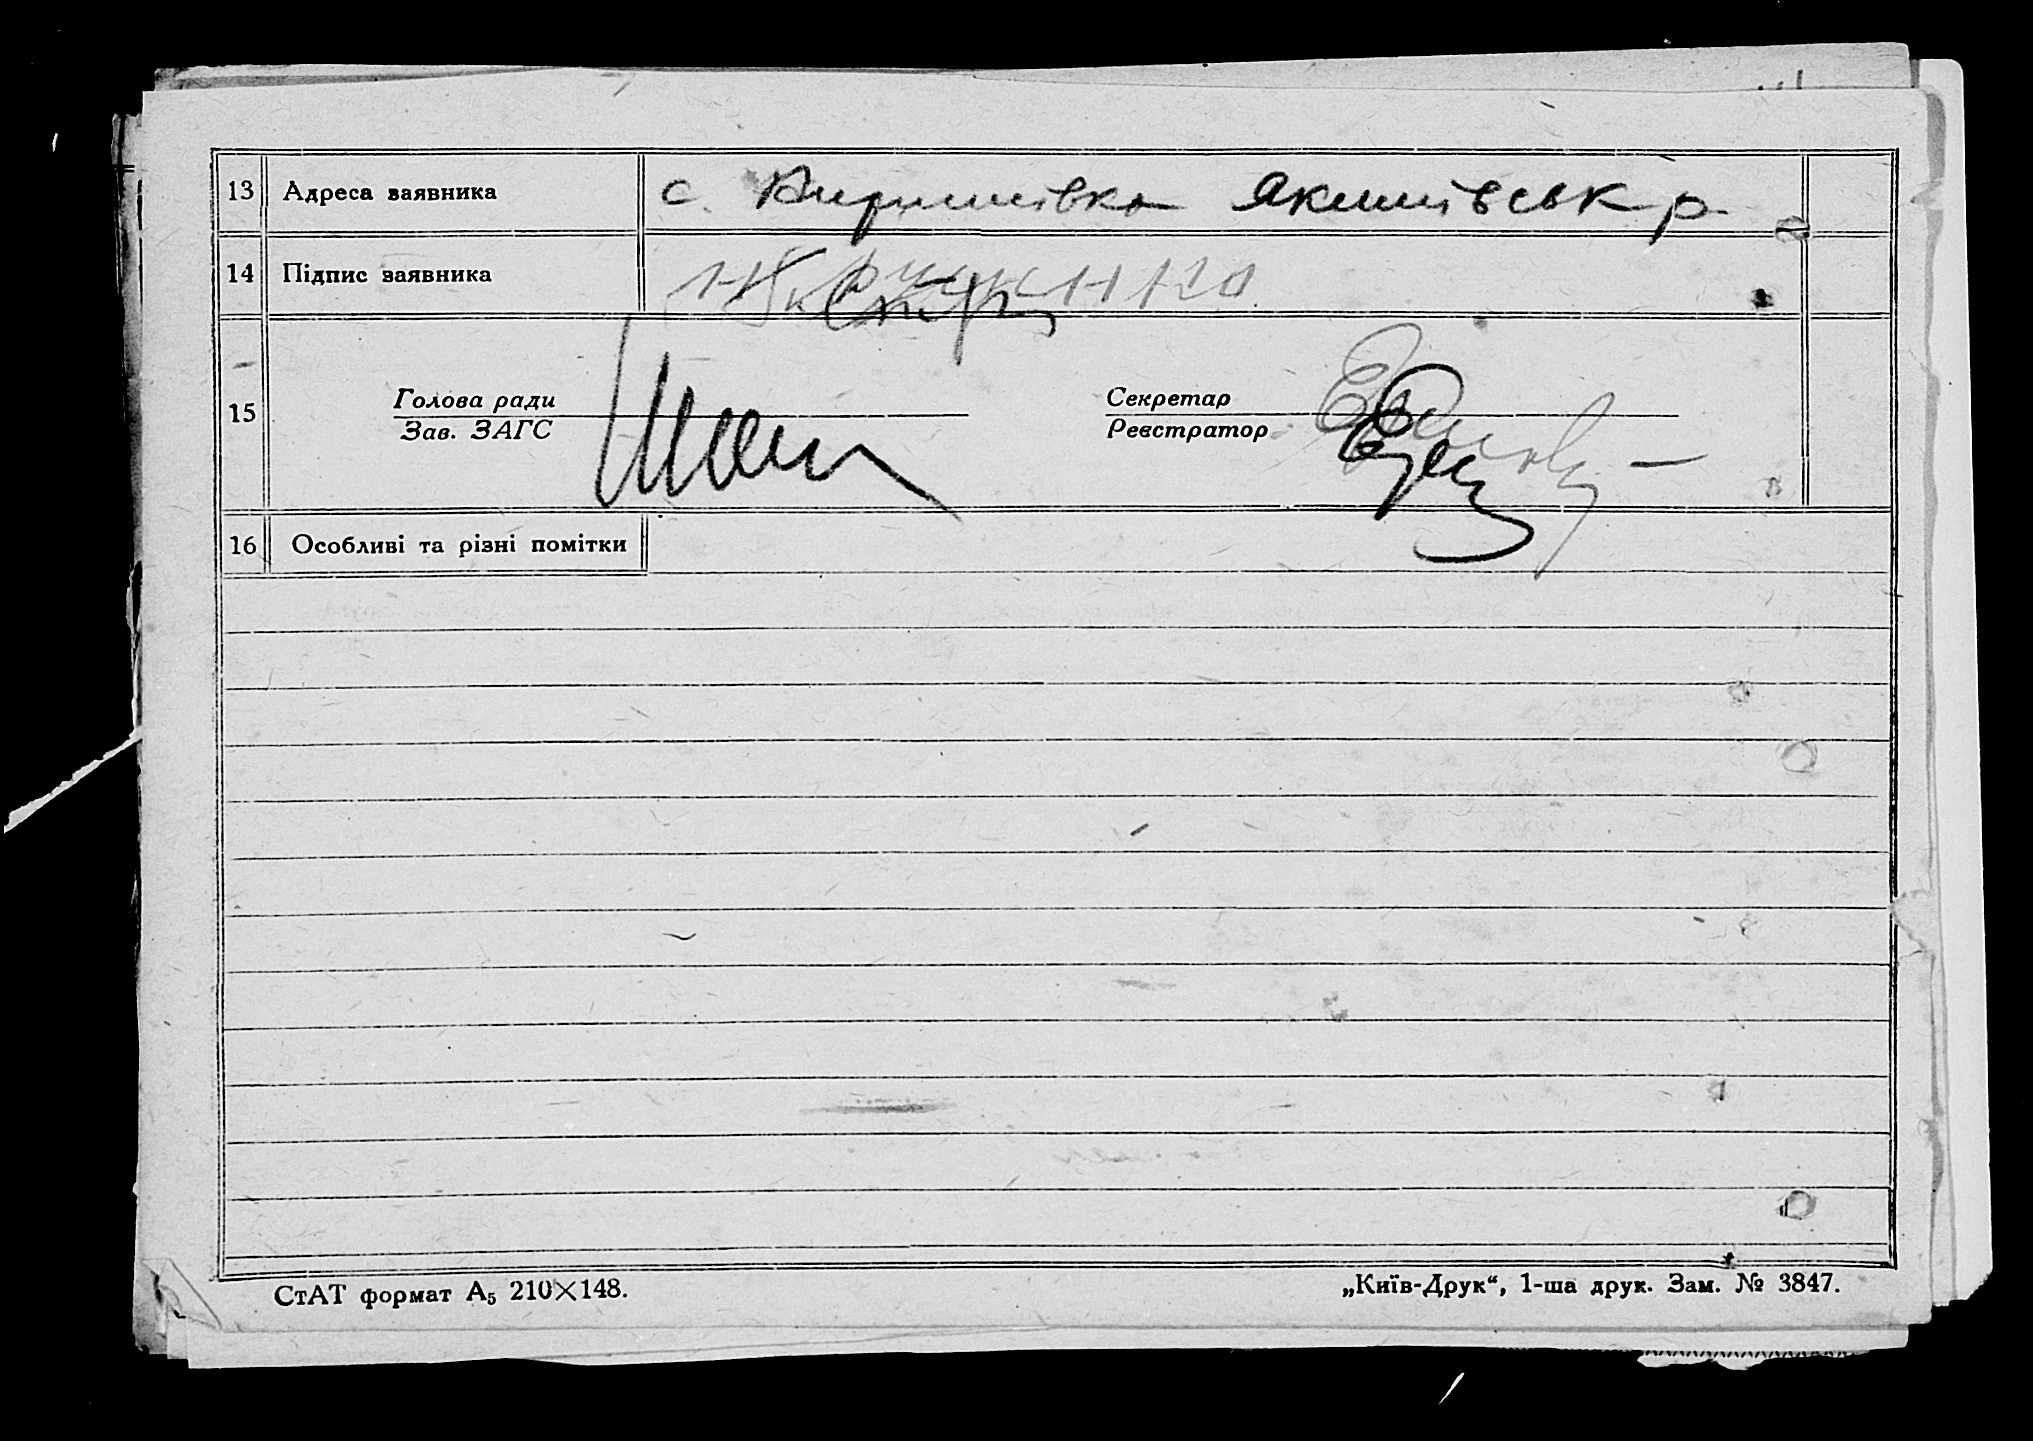 13 Адреса заявника с. Кирилівка Якимівськ р.
14 Підпис заявника
15 Голова ради Секретар
Зав. ЗАГС Реєстратор
16 Особливі та різні помітки
СтАТ формат А₅ 210×148. „Київ-Друк“, 1-ша друк. Зам. № 3847.